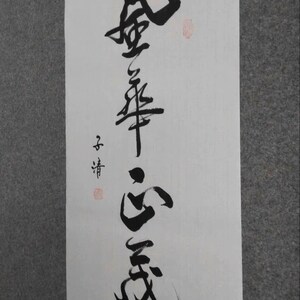 風華正茂
子清